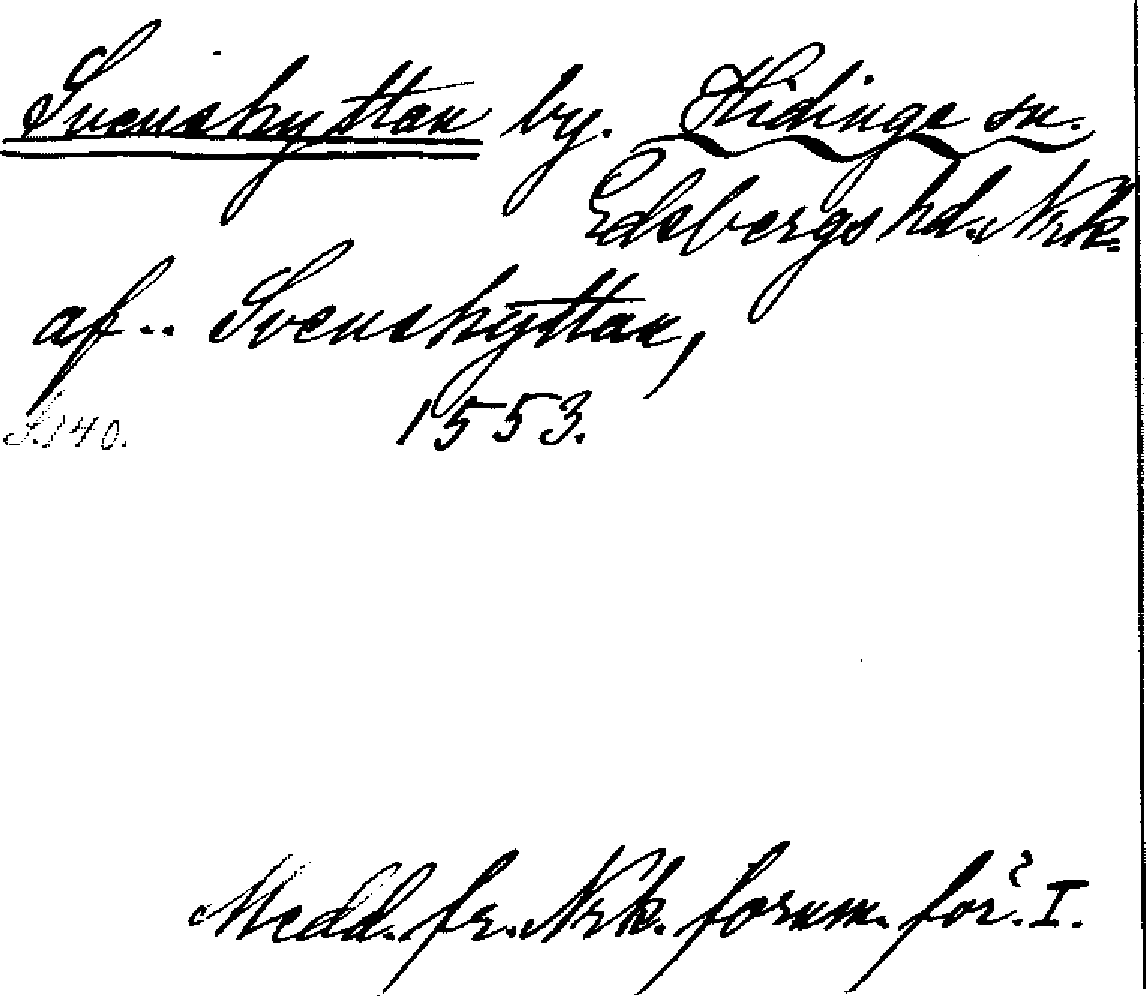 Svenshyttan by. Hidinge sn.
Edsbergs hd. Nrk.
af .. Svenshyttan,
S. 140. 1553.
Medd. fr. Nrk. fornm. för. I.